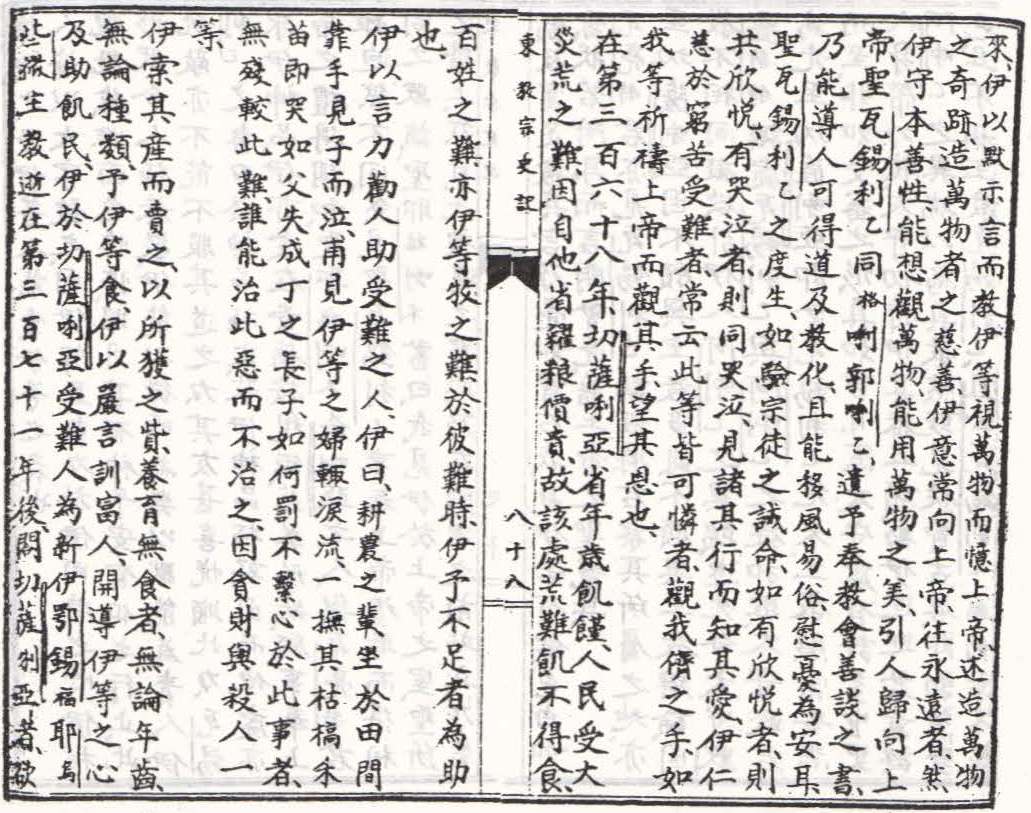 來、伊以默示言而教伊等視萬物而憶上帝、述造萬物
之奇跡、造萬物者之慈善、伊意常向上帝、往永遠者、然
伊守本善性、能想觀萬物、能用萬物之美、引人歸向上
帝、聖瓦錫利乙同格唎郭唎乙、遺予奉教會善談之書、
乃能導人可得道及教化、且能移風易俗、慰憂為安耳、
聖瓦錫利乙之度生、如驗宗徒之誡命、如有欣悅者、則
共欣悅、有哭泣者、則同哭泣、見諸其行而知其愛伊仁
慈於窮苦受難者、常云此等皆可憐者、觀我儕之手、如
我等祈禱上帝而觀其手、望其恩也、
在第三百六十八年、切薩唎亞省年歲飢饉、人民受大
災荒之難、因自他省糴粮價貴、故該處荒難飢不得食、
東教宗史記
八十八
百姓之難、亦伊等牧之難、於彼難時、伊予不足者為助
也、
伊以言力勸人助受難之人、伊曰、耕農之輩坐於田間
靠手見子而泣、甫見伊等之婦輙淚流、一撫其枯槁禾
苗即哭、如父失成丁之長子、如何罰不繫心於此事者、
無殘較此難、誰能治此惡而不治之、因貪財與殺人一
等、
伊索其產而賣之、以所獲之貲、養育無食者、無論年齒、
無論種類、予伊等食、伊以嚴言訓富人、開導伊等之心
及助飢民、伊於切薩唎亞受難人為新伊鄂錫福、耶烏
些微生教逝在第三百七十一年後、閤切薩唎亞者、欲